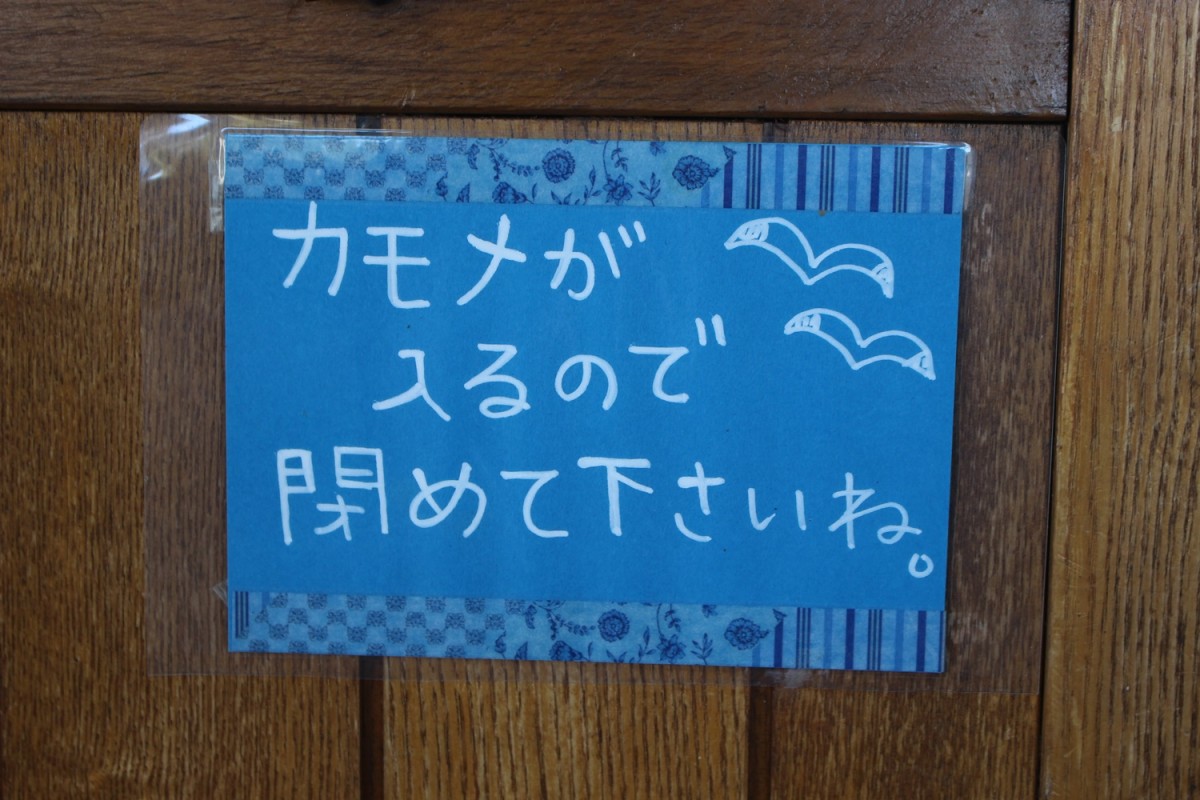 カモメが
入るので
閉めて下さいね。